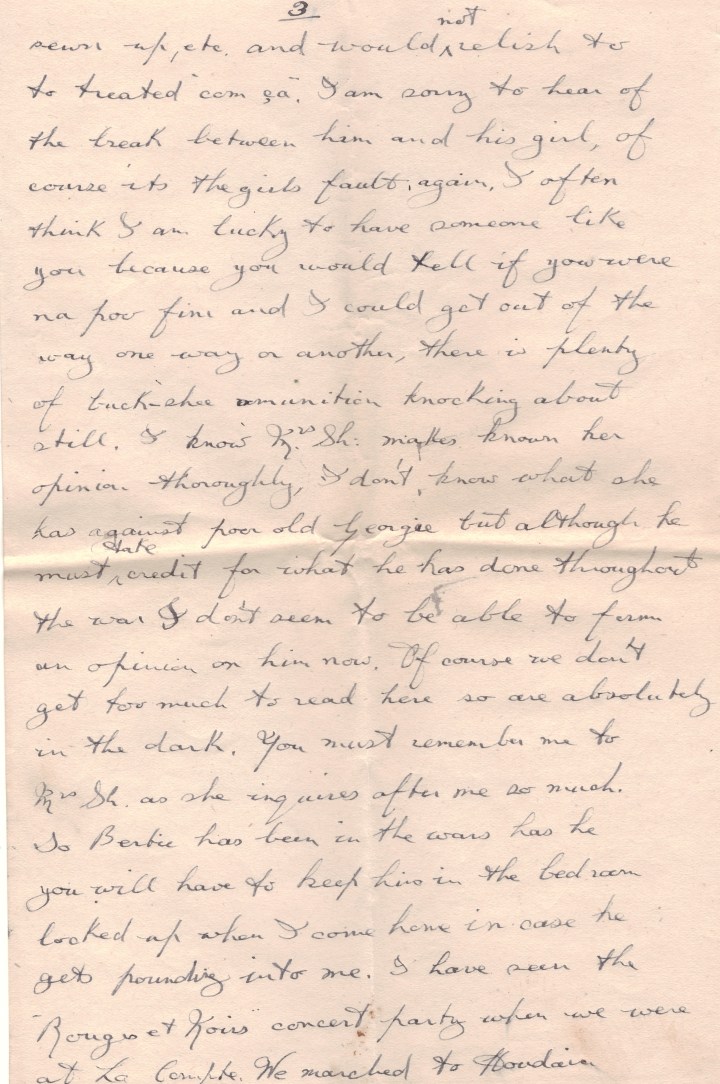 3
sewn up, etc. and would not relish to
to treated "com ça". I am sorry to hear of
the break between him and his girl, of
course its the girls fault, again. I often
think I am lucky to have someone like
you because you would tell if you were
na poo fini and I could get out of the
way one way or another, there is plenty
of buck-shee amunition knocking about
still. I know Mrs Sh: makes known her
opinion thoroughly, I don't know what she
has against poor old Georgie but although he
must take credit for what he has done throughout
the war I don't seem to be able to form
an opinion on him now. Of course we don't
get too much to read here so are absolutely
in the dark. You must remember me to
Mrs Sh. as she inquires after me so much.
So Bertie has been in the wars has he
you will have to keep him in the bedroom
locked up when I come home in case he
gets pounding into me. I have seen the
"Rouges et Noirs" concert party when we were
at La Compte. We marched to Houdain